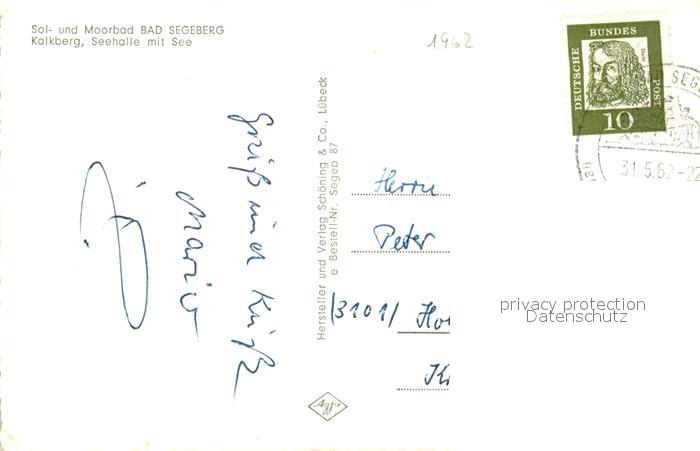 Sol- und Moorbad BAD SEGEBERG
Kalkberg, Seehalle mit See
1962
Gruß und Kuß
Hersteller und Verlag Schöning & Co., Lübeck
e Bestell-Nr. Segeb 87
Agfa
DEUTSCHE BUNDES POST
Dürer
10
SEG
31.5.62-22
Herrn
Peter
(3101)
privacy protection
Datenschutz